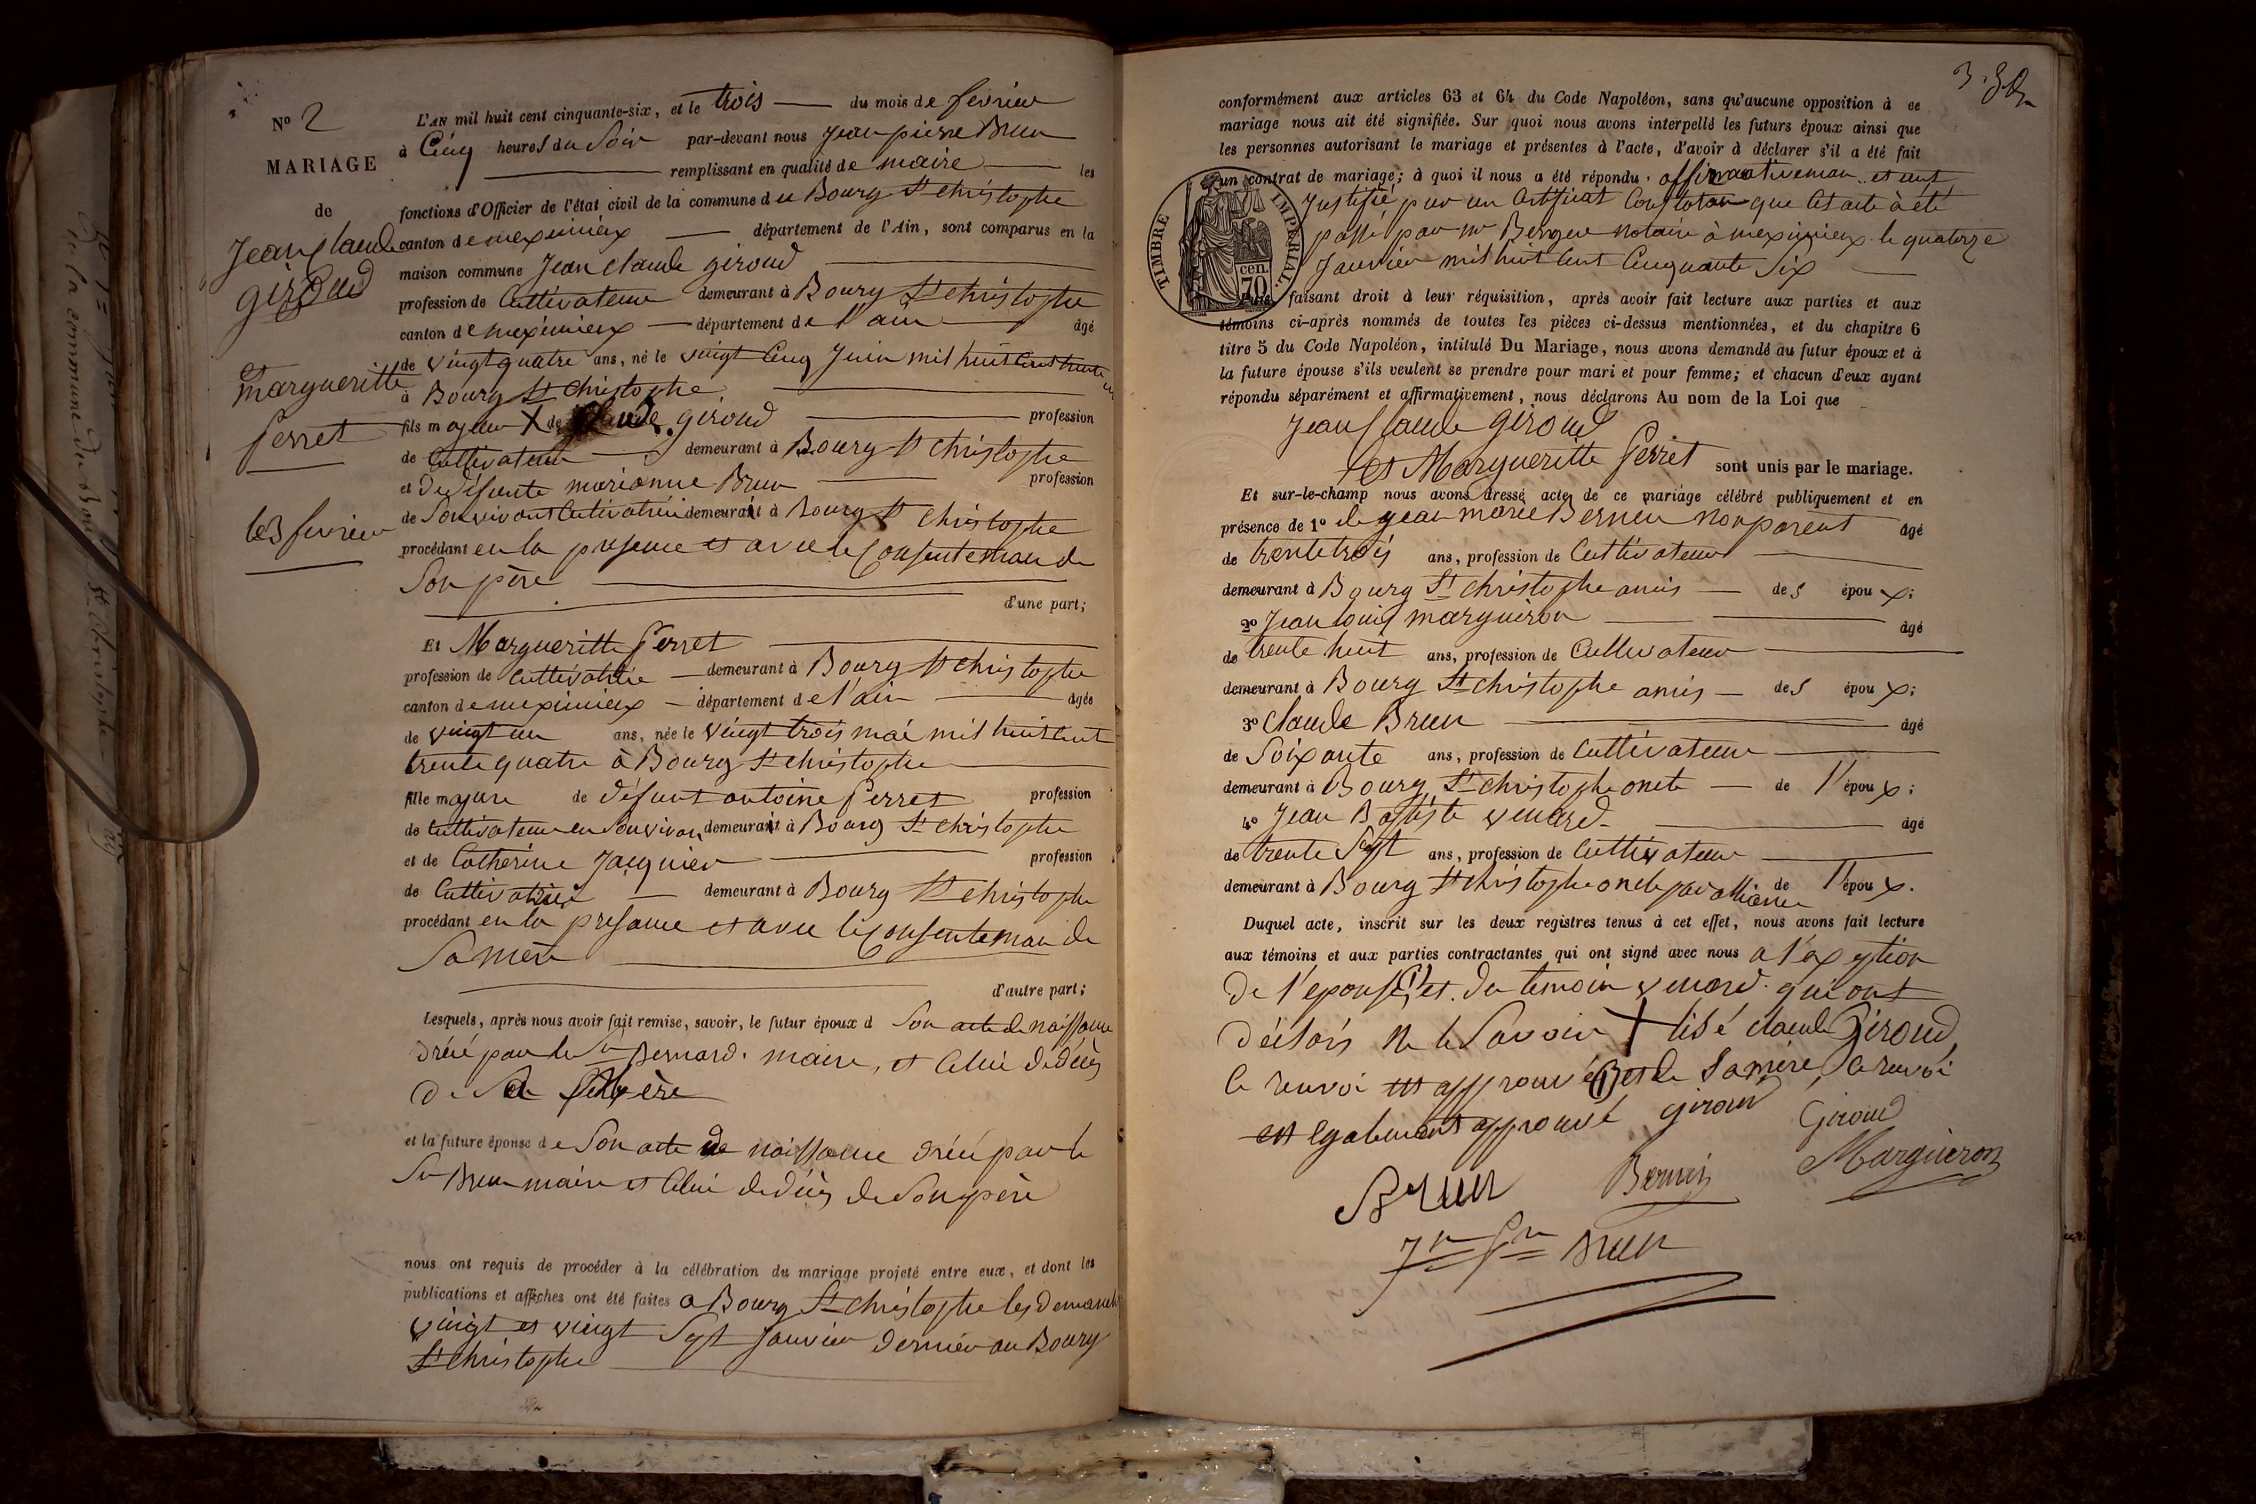 N° 2
MARIAGE
de
Jean Claude
giroud
et
margueritte
perret
le 3 fevrier
L'AN mil huit cent cinquante-six, et le trois du mois de fevrier
à Cinq heures du Soir par-devant nous jean pierre Brun
remplissant en qualité de maire les
fonctions d'Officier de l'état civil de la commune du Bourg St christophe
canton de meximieux département de l'Ain, sont comparus en la
maison commune Jean claude giroud
profession de Cultivateur demeurant à Bourg St christophe
canton de meximieux département de l'ain âgé
de vingt quatre ans, né le vingt Cinq Juin mil huit Cent trente un
à Bourg St Christophe
fils majeur X de Claude giroud profession
de Cultivateur demeurant à Bourg St christophe
et de defunte marianne Brun profession
de Son vivant Cultivatrice demeurait à Bourg St christophe
procédant en la presance et avec le Consenteman de
Son père
d'une part;
Et Margueritte Perret
profession de Cultivatrice demeurant à Bourg St christophe
canton de meximieux département de l'ain âgée
de vingt un ans, née le vingt trois mai mil huit Cent
trente quatre à Bourg St christophe
fille majeure de défunt antoine Perret profession
de Cultivateur en Son vivan demeurait à Bourg St christophe
et de Catherine Jacquier profession
de Cultivatrice demeurant à Bourg St christophe
procédant en la presance et avec le Consenteman de
Sa mère
d'autre part;
Lesquels, après nous avoir fait remise, savoir, le futur époux d Son acte de naissance
drécé par le Sr Bernard maire, et Celui de décès
de Sa mère
et la future épouse de Son acte de naissance drécé par le
Sr Brun maire et Celui de décès de Son père
nous ont requis de procéder à la célébration du mariage projeté entre eux, et dont les
publications et affiches ont été faites a Bourg St christophe les demanche
vingt et vingt Sept Janvier dernier au Bourg
St christophe
3. 
conformément aux articles 63 et 64 du Code Napoléon, sans qu'aucune opposition à ce
mariage nous ait été signifiée. Sur quoi nous avons interpellé les futurs époux ainsi que
les personnes autorisant le mariage et présentes à l'acte, d'avoir à déclarer s'il a été fait
un contrat de mariage; à quoi il nous a été répondu affirmativeman et ont
Justifié par un Certificat Constatan que Cet acte à été
passé par mr Berger notaire à meximieux le quatorze
Janvier mil huit Cent Cinquante Six
TIMBRE IMPÉRIAL.
cen. 70
faisant droit à leur réquisition, après avoir fait lecture aux parties et aux
témoins ci-après nommés de toutes les pièces ci-dessus mentionnées, et du chapitre 6
titre 5 du Code Napoléon, intitulé Du Mariage, nous avons demandé au futur époux et à
la future épouse s'ils veulent se prendre pour mari et pour femme; et chacun d'eux ayant
répondu séparément et affirmativement, nous déclarons Au nom de la Loi que
Jean Claude Giroud
et Margueritte Perret sont unis par le mariage.
Et sur-le-champ nous avons dressé acte de ce mariage célébré publiquement et en
présence de 1° de jean marie Bernin non parent âgé
de trente trois ans, profession de Cultivateur
demeurant à Bourg St christophe amis des époux;
2° Jean louis marguiron âgé
de trente huit ans, profession de Cultivateur
demeurant à Bourg St christophe amis des époux;
3° Claude Brun âgé
de Soixante ans, profession de Cultivateur
demeurant à Bourg St christophe oncle de l'époux;
4° Jean Baptiste venard âgé
de trente Sept ans, profession de Cultivateur
demeurant à Bourg St christophe oncle par alliance de l'époux.
Duquel acte, inscrit sur les deux registres tenus à cet effet, nous avons fait lecture
aux témoins et aux parties contractantes qui ont signé avec nous a l'exeption
de l'epouse (1) et du temoin venard qui ont
déclarés ne le Savoir X lisé claude Giroud
le renvoi est approuvé (1) et de Sa mère le renvoi
est egalement approuvé Giroud Giroud
Brun Bernin Marguiron
Jn Pre Brun